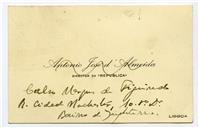 Antonio José d'Almeida
DIRECTOR DA "REPUBLICA"
Carlos Marques de Figueiredo
R. Cidade Manchester, 10. r. D.
Bairro de Inglaterra
LISBOA